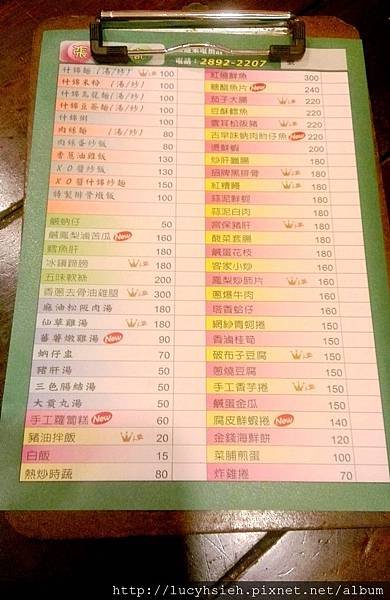 張
電話：2892-2207
什錦麵（湯/炒） 100
什錦米粉（湯/炒） 100
什錦烏龍麵(湯/炒) 100
什錦豆簽麵(湯/炒) 100
什錦粥 100
肉絲麵（湯/炒） 80
肉絲蛋炒飯 80
香蔥油雞飯 130
XO醬炒飯 130
XO醬什錦炒麵 150
特製排骨燉飯 100
鹹蚋仔 50
鹹鳳梨滷苦瓜 New 160
鱈魚肝 180
冰鎮蹄膀 180
五味軟絲 200
香蔥去骨油雞腿 300
麻油松阪肉湯 180
仙草雞湯 180
蕃薯嫩雞湯 New 90
蚋仔盅 70
豬肝湯 50
三色腸鱔湯 50
大貢丸湯 50
手工蘿蔔糕 New 60
豬油拌飯 20
白飯 15
熱炒時蔬 80
紅燒鮮魚 300
糖醋魚片 New 240
茄子大腸 220
豆酥鱈魚 220
雲耳松阪豬 220
古早味蚋肉飿仔魚 New 200
燙鮮蝦 200
炒肝臘腸 180
招牌黑排骨 180
紅糟鰻 180
蒜泥鮮蝦 180
蒜泥白肉 180
宮保豬肝 180
酸菜套腸 180
鹹蛋花枝 180
客家小炒 160
鳳梨炒肺片 160
蔥爆牛肉 160
塔香蛤仔 160
網紗青蚵捲 150
香滷桂筍 150
破布子豆腐 150
蔥燒豆腐 150
手工香芋捲 150
鹹蛋金瓜 150
腐皮鮮蝦捲 New 140
金錢海鮮餅 120
菜脯煎蛋 100
炸雞捲 70
http://lucyhsieh.pixnet.net/album